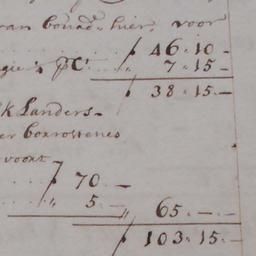 van bouade hier, voor
ƒ 46:10-
gie's pCt ... „ 7:15-
ƒ 38:15-
k Landers-
er boxrostenes
voort
ƒ 70. -
„ 5.- „ 65.-.-
ƒ 103:15.-